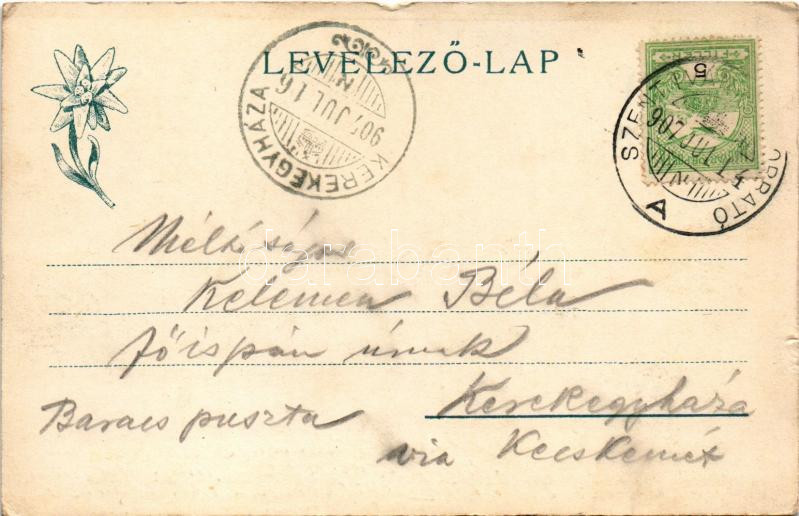 LEVELEZŐ-LAP
KEREKEGYHÁZA
907 JUL 16
N
5
FILLÉR
907 JUL 14
N
A
Méltóságos
Kelemen Béla
főispán úrnak
Kerekegyháza
Baracs puszta
via Kecskemét
darabanth